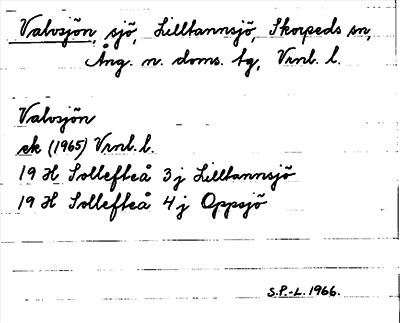 Valvsjön, sjö, Lilltannsjö, Skorpeds sn,
Ång. n. doms. tg, Vrnl. l.
Valvsjön
ek (1965) Vrnl. l.
19 H Sollefteå 3 j Lilltannsjö
19 H Sollefteå 4 j Oppsjö
S.P.-L. 1966.